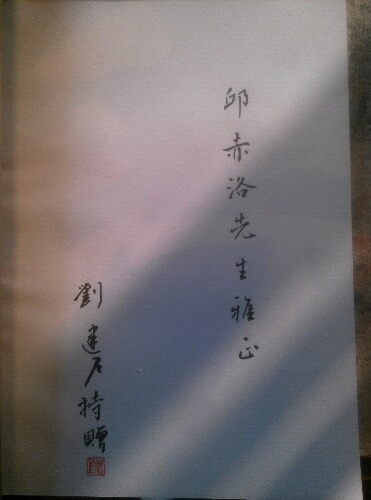 邱赤洛先生雅正
劉建石持贈